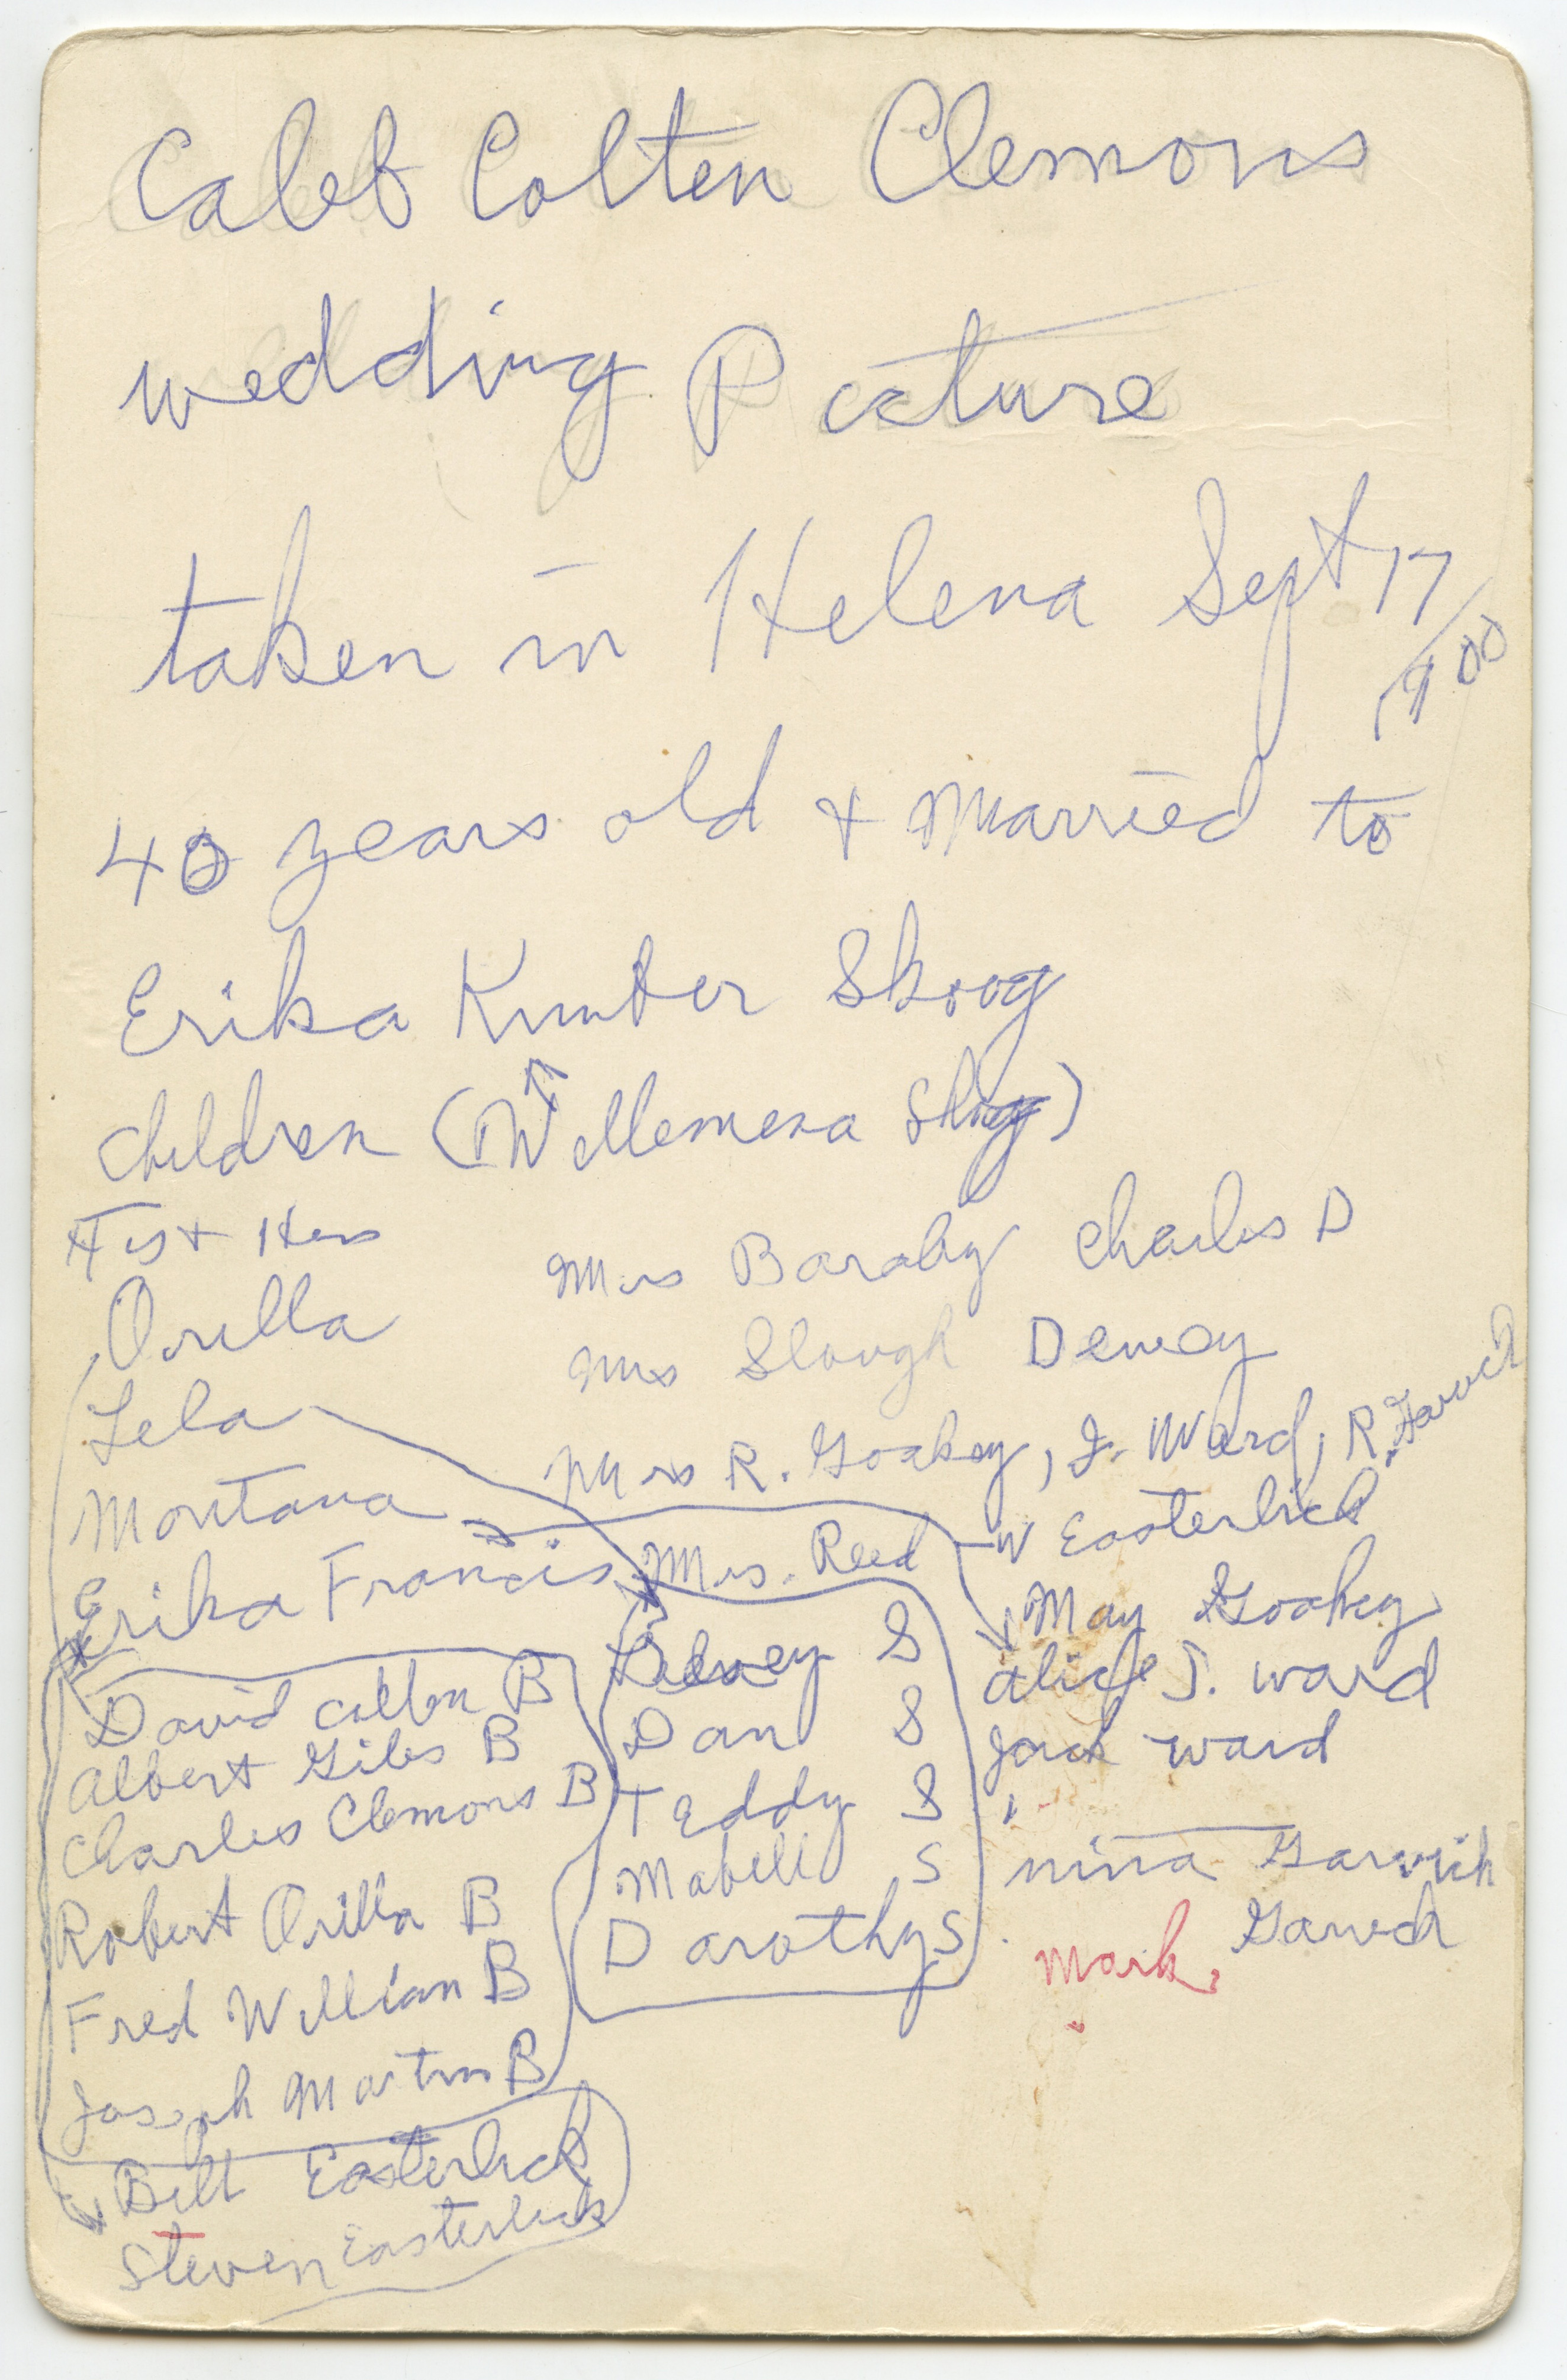 Caleb Colten Clemons
wedding Picture
taken in Helena Sept 17
1900
40 years old & Married to
Erika Kunter Skoog
children (Willemena Skoog)
His + Hers
Orilla Mrs Baraby Charles D
Lela Mrs Slough Dewey
Montana Mrs R. Goakey, J. Ward, R. Garvich
W Easterlick
Erika Francis Mrs. Reed
David Colten B
Albert Giles B
Charles Clemons B
Robert Orilla B
Fred William B
Joseph Martin B
Bill Easterlick
Steven Easterlick
Dewey S
Dan S
Teddy S
Mabell S
Darothy S
May Goakey
Alice J. Ward
Jack Ward
nina Garvich
Mark Garvich